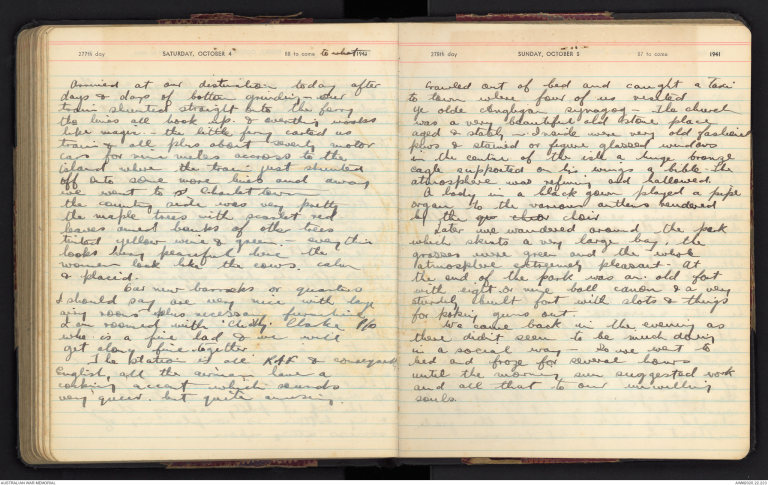 277th day SATURDAY, OCTOBER 4 88 to come to what 1941
Arrived at our destination today after
days & days of bottom grinding - our
train shunted straight onto the ferry
the lines all hook up & everything works
like magic - the little ferry carted us
train & all plus about seventy motor
cars for nine miles across to the
island where the train just shunted
off onto some more lines and away
we went to Charlottetown
the country side was very pretty
the maple trees with scarlet red
leaves amid banks of other trees
tinted yellow wine & green, - everything
looks very peaceful here the
women look like the cows. calm
& placid.
Our new barracks or quarters
I should say are very nice with large
airy rooms plus necessary furnishing
I am roomed with Clarke P/O
who is a fine lad & we will
get along fine together.
The station is all RAF & consequently
English, all the airmen have a
cockney accent which sounds
very queer. but quite amusing.
278th day SUNDAY, OCTOBER 5 87 to come 1941
Crawled out of bed and caught a taxi
to town where four of us visited
ye olde synagog - The church
was a very beautiful old stone place
aged & stately - Inside were very old fashioned
pews & stained or figure glassed windows
in the centre of the isle a huge bronze
eagle supported on his wings a bible the
atmosphere was refining and hallowed.
A body in a black gown played a pipe
organ to the various anthems rendered
by the choir
Later we wandered around the park
which skirts a very large bay, the
grasses were green and the whole
atmosphere extremely pleasant. At
the end of the park was an old fort
with eight or nine ball canon & a very
sturdily built fort with slots & things
for poking guns out.
We came back in the evening as
there didn't seem to be much doing
in a social way - So we went to
bed and froze for several hours
until the morning sun suggested work
and all that to our unwilling
souls.
AUSTRALIAN WAR MEMORIAL